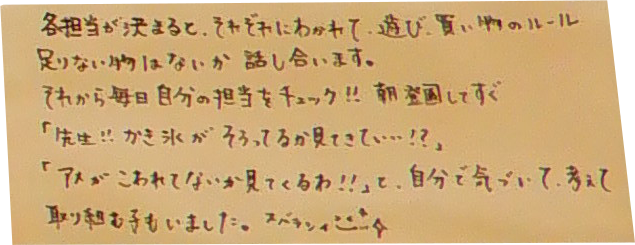 各担当が決まると、それぞれにわかれて、遊び、買い物のルール
足りない物はないか 話し合います。
それから毎日自分の担当をチェック!! 朝登園してすぐ
「先生!! かき氷が そろってるか見てきてい…!?」
「アメが こわれてないか見てくるわ!!」と、自分で気づいて、考えて
取り組む子もいました。スバラシイ